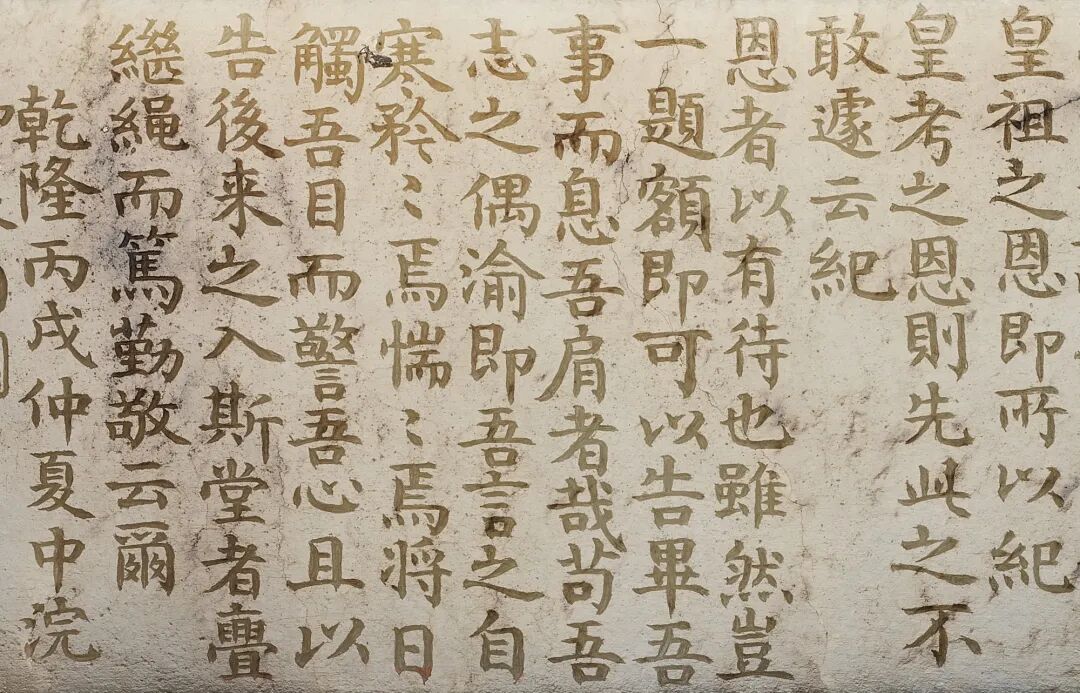 皇祖之恩即所以紀
皇考之恩則先此之不
敢遽云紀
恩者以有待也雖然豈
一題額即可以告畢吾
事而息吾肩者哉苟吾
志之偶渝即吾言之自
寒矜〻焉惴〻焉將日
觸吾目而警吾心且以
告後来之入斯堂者亹
繼繩而篤勤敬云爾
乾隆丙戌仲夏中浣